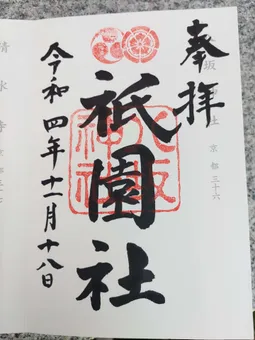 奉拝
京都 三十六
祇園社
八坂神社
令和四年十一月十八日
清水寺